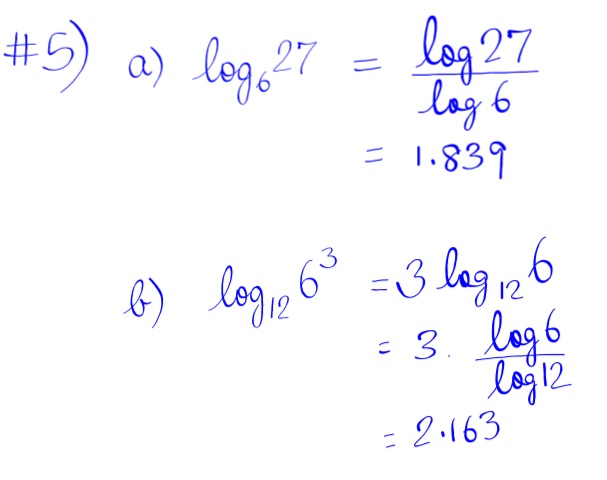 #5) a) log₆27 = log27 / log6
= 1.839
b) log₁₂6³ = 3 log₁₂6
= 3 · log6 / log12
= 2.163